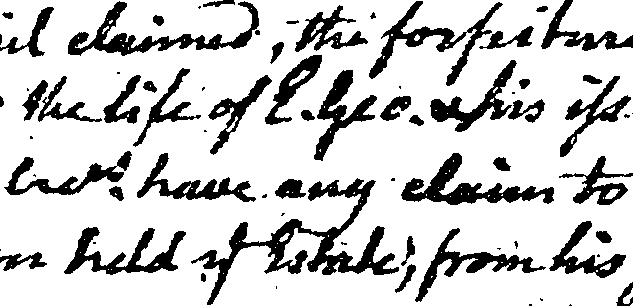 claimed, the forfeiture
the life of E. Geo. & his iss
Cred.rs have any claim to
held y.e Estate, from his